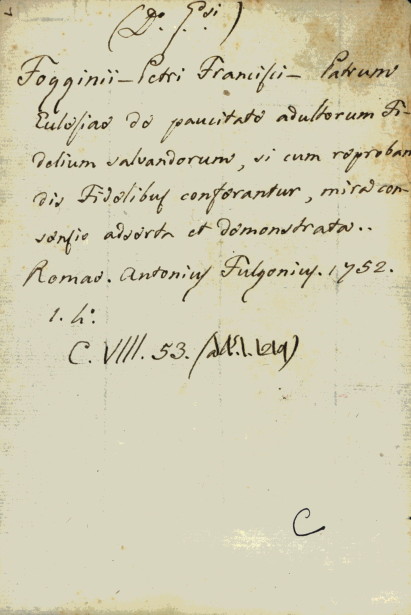 (Do. Gsi.)
Fogginii - Petri Francisci - Patrum
Ecclesiae de paucitate adultorum Fi-
delium salvandorum, si cum reproban
dis Fidelibus conferantur, mira con-
sensio adserta et demonstrata..
Romae. Antonius Fulgonius. 1752.
1. 4o.
C. VIII. 53.
C